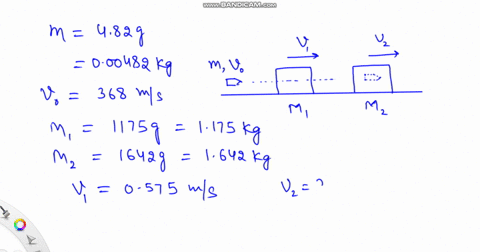 WWW.BANDICAM.COM
m = 4.82g
= 0.00482 kg
V₀ = 368 m/s
M₁ = 1175g = 1.175 kg
M₂ = 1642g = 1.642 kg
V₁ = 0.575 m/s
V₂ = ?
m, V₀
V₁
V₂
M₁
M₂